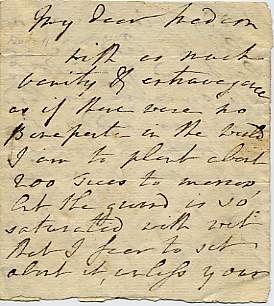 My dear Madam
with as much
vanity & extravagance
as if there were no
Bonaparte in the world
I am to plant about
200 trees to morrow,
but the ground is so
saturated with wet
that I fear to set
about it, unless your